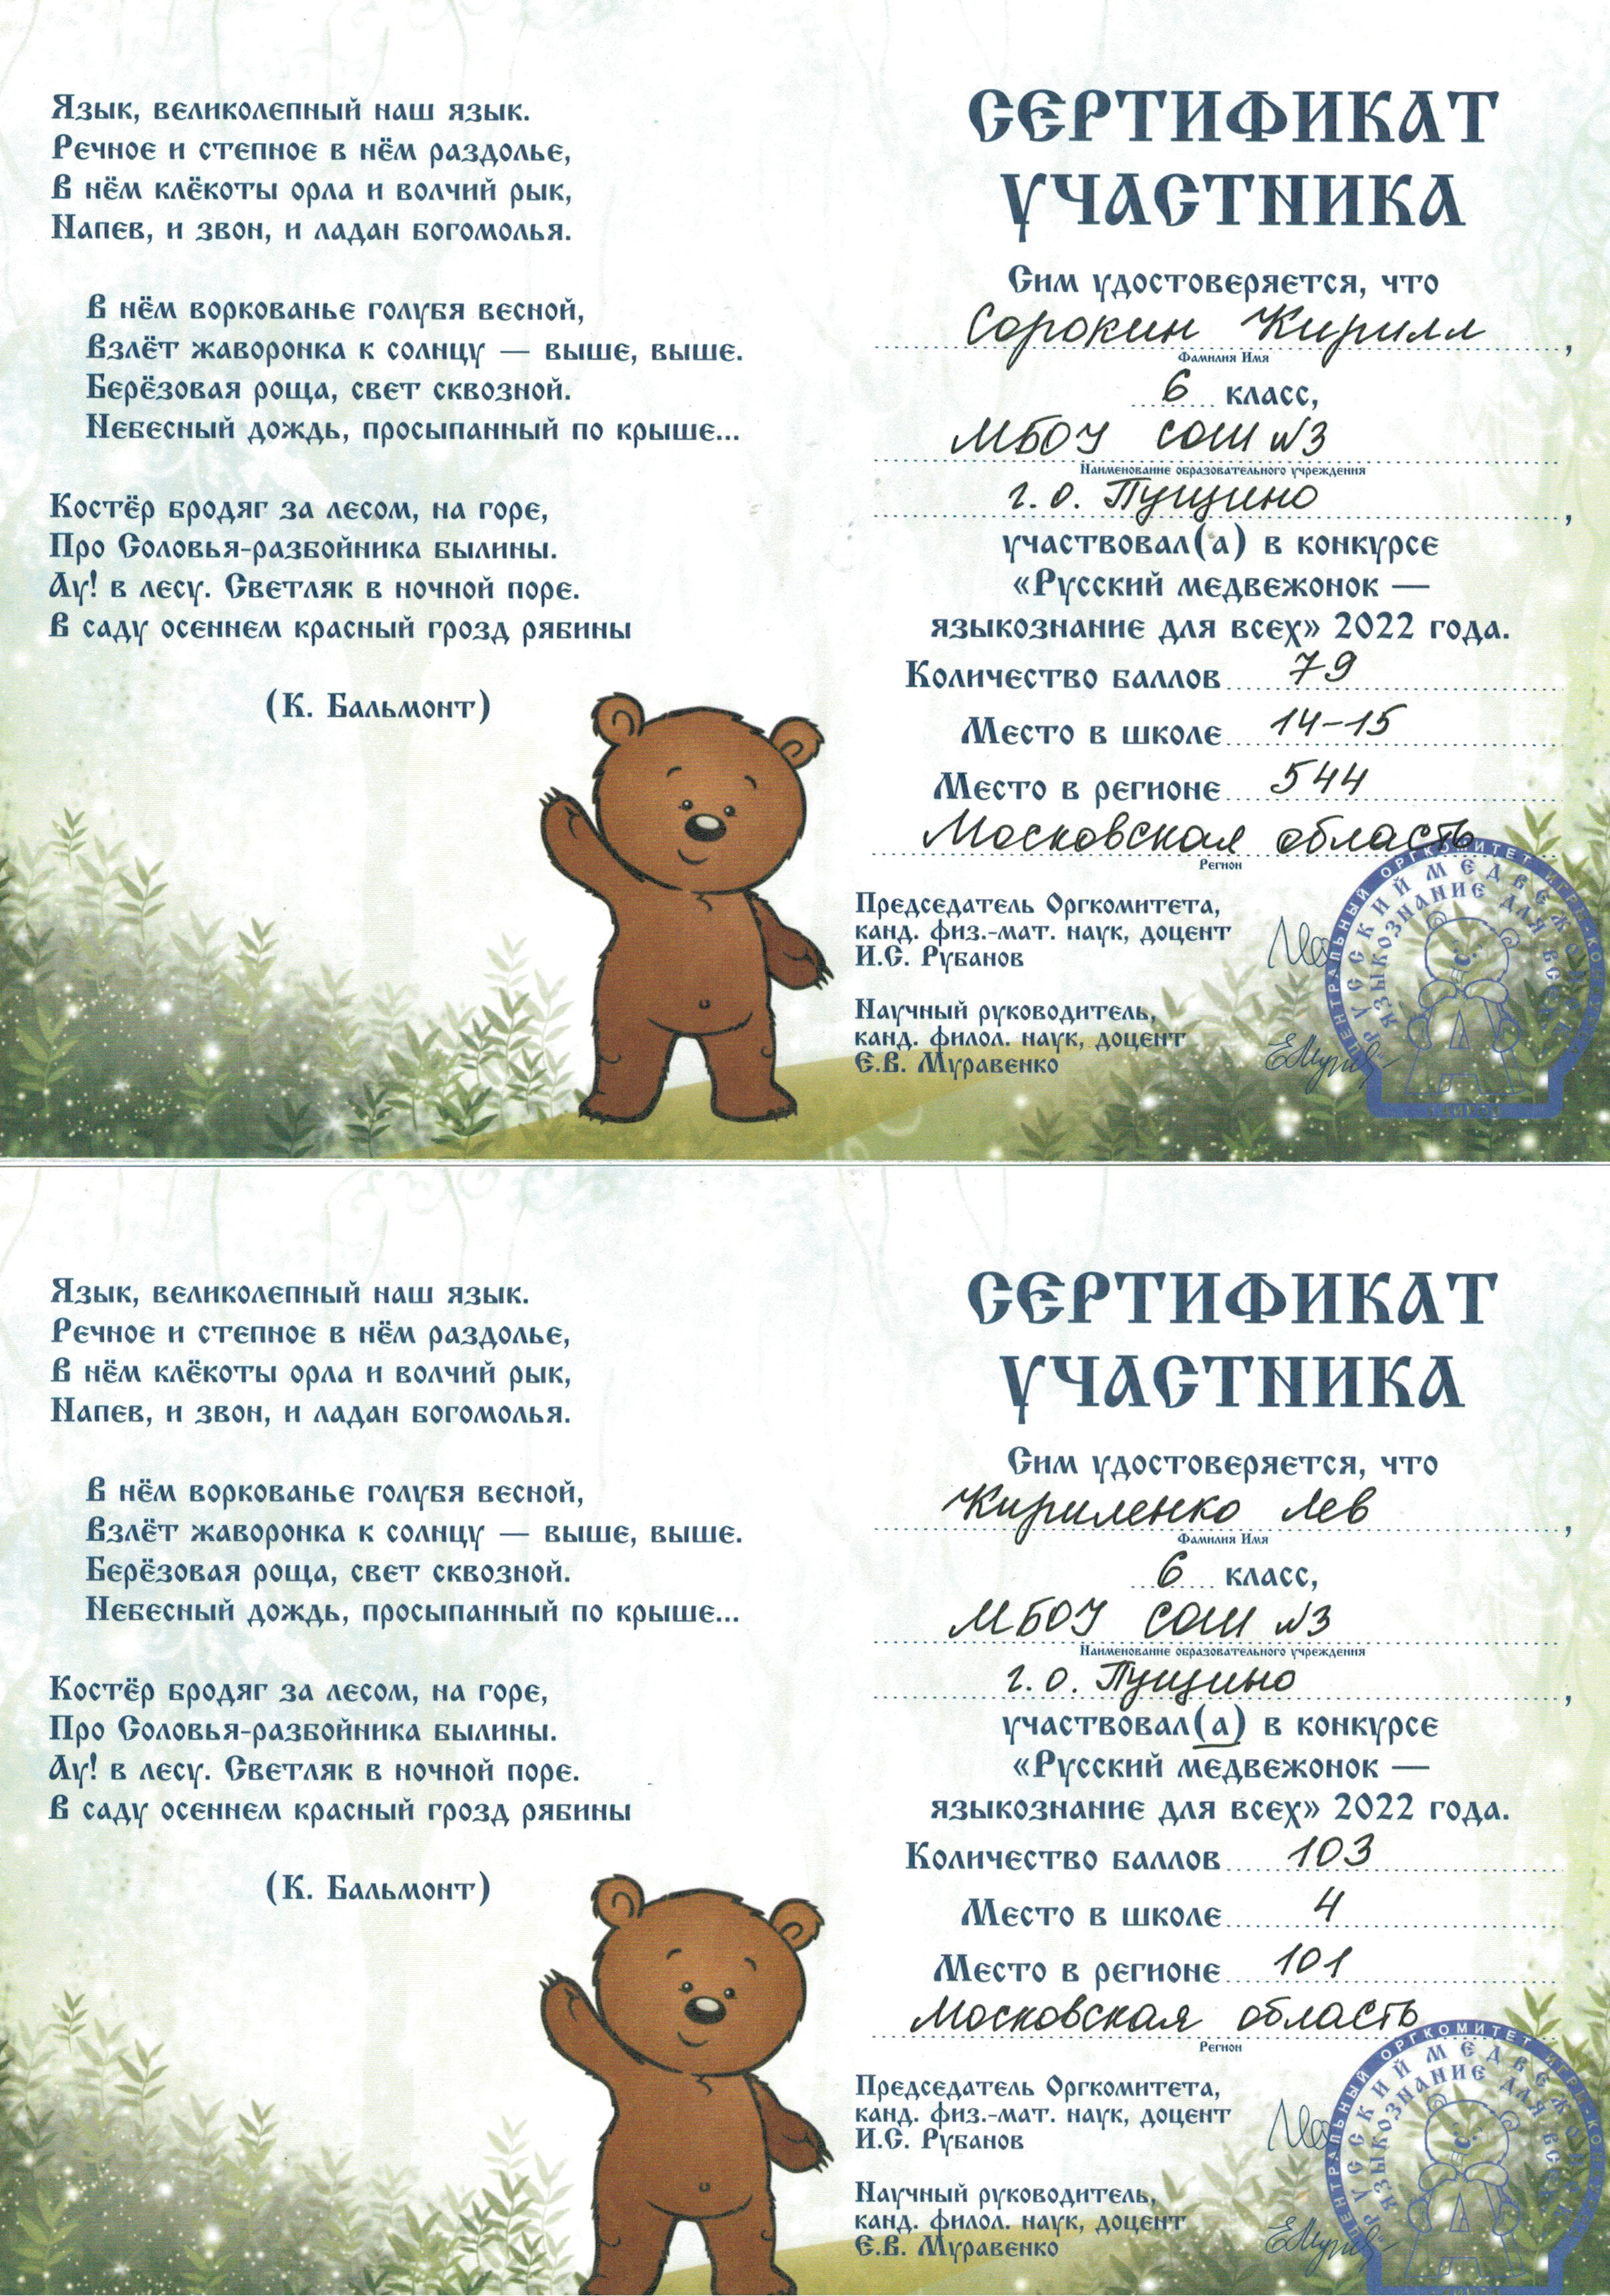 Язык, великолепный наш язык.
Речное и степное в нём раздолье,
В нём клёкоты орла и волчий рык,
Напев, и звон, и ладан богомолья.
В нём воркованье голубя весной,
Взлёт жаворонка к солнцу — выше, выше.
Берёзовая роща, свет сквозной.
Небесный дождь, просыпанный по крыше...
Костёр бродяг за лесом, на горе,
Про Соловья-разбойника былины.
Ау! в лесу. Светляк в ночной поре.
В саду осеннем красный грозд рябины
(К. Бальмонт)
СЕРТИФИКАТ
УЧАСТНИКА
Сим удостоверяется, что
Сорокин Кирилл,
Фамилия Имя
6 класс,
МБОУ СОШ №3
Наименование образовательного учреждения
г.о. Пущино,
участвовал(а) в конкурсе
«Русский медвежонок —
языкознание для всех» 2022 года.
Количество баллов 79
Место в школе 14-15
Место в регионе 544
Московская область
Регион
Председатель Оргкомитета,
канд. физ.-мат. наук, доцент
И.С. Рубанов
Научный руководитель,
канд. филол. наук, доцент
Е.В. Муравенко
ЦЕНТРАЛЬНЫЙ ОРГКОМИТЕТ ИГРЫ-КОНКУРСА
РУССКИЙ МЕДВЕЖОНОК
ЯЗЫКОЗНАНИЕ ДЛЯ ВСЕХ
Язык, великолепный наш язык.
Речное и степное в нём раздолье,
В нём клёкоты орла и волчий рык,
Напев, и звон, и ладан богомолья.
В нём воркованье голубя весной,
Взлёт жаворонка к солнцу — выше, выше.
Берёзовая роща, свет сквозной.
Небесный дождь, просыпанный по крыше...
Костёр бродяг за лесом, на горе,
Про Соловья-разбойника былины.
Ау! в лесу. Светляк в ночной поре.
В саду осеннем красный грозд рябины
(К. Бальмонт)
СЕРТИФИКАТ
УЧАСТНИКА
Сим удостоверяется, что
Кириленко Лев,
Фамилия Имя
6 класс,
МБОУ СОШ №3
Наименование образовательного учреждения
г.о. Пущино,
участвовал(а) в конкурсе
«Русский медвежонок —
языкознание для всех» 2022 года.
Количество баллов 103
Место в школе 4
Место в регионе 101
Московская область
Регион
Председатель Оргкомитета,
канд. физ.-мат. наук, доцент
И.С. Рубанов
Научный руководитель,
канд. филол. наук, доцент
Е.В. Муравенко
ЦЕНТРАЛЬНЫЙ ОРГКОМИТЕТ ИГРЫ-КОНКУРСА
РУССКИЙ МЕДВЕЖОНОК
ЯЗЫКОЗНАНИЕ ДЛЯ ВСЕХ